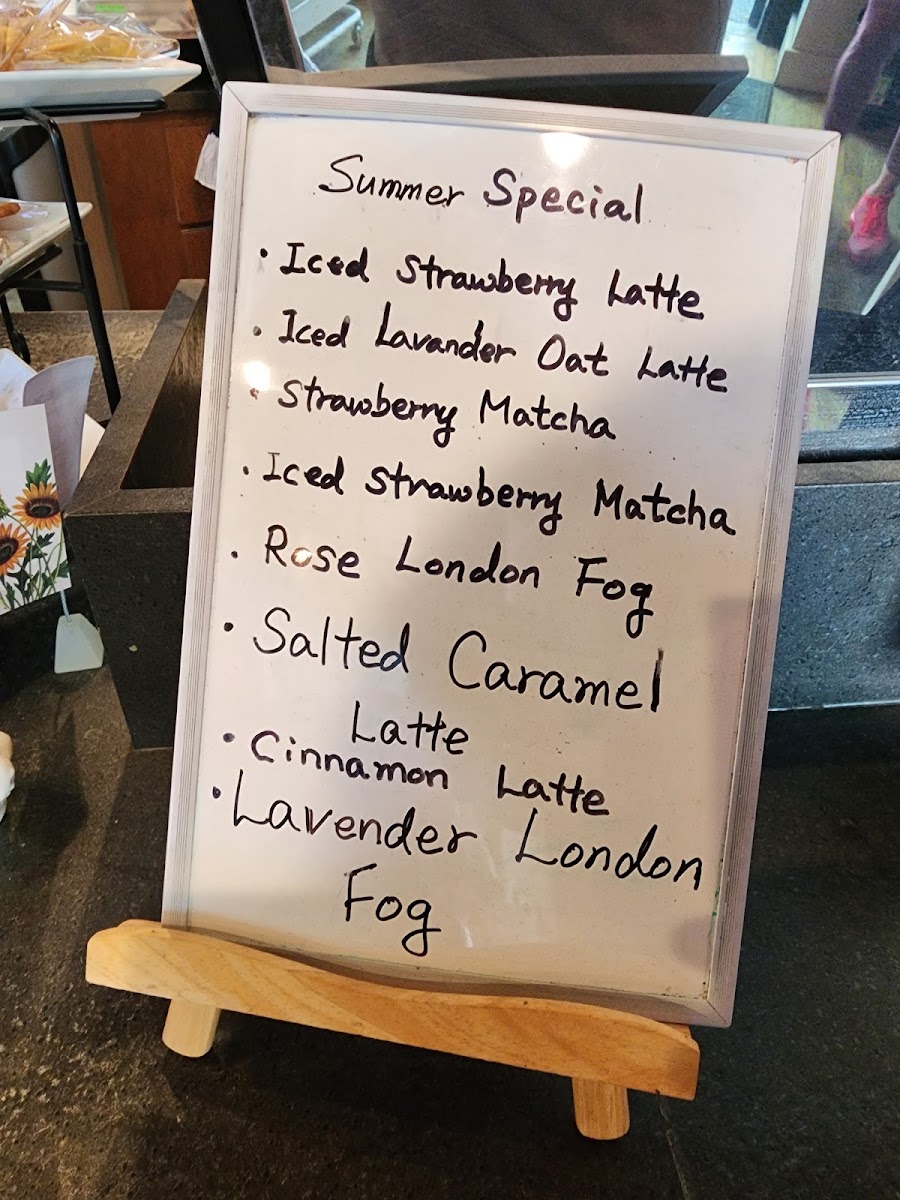 Summer Special
• Iced Strawberry Latte
• Iced Lavander Oat Latte
• Strawberry Matcha
• Iced Strawberry Matcha
• Rose London Fog
• Salted Caramel
Latte
• Cinnamon Latte
• Lavender London
Fog